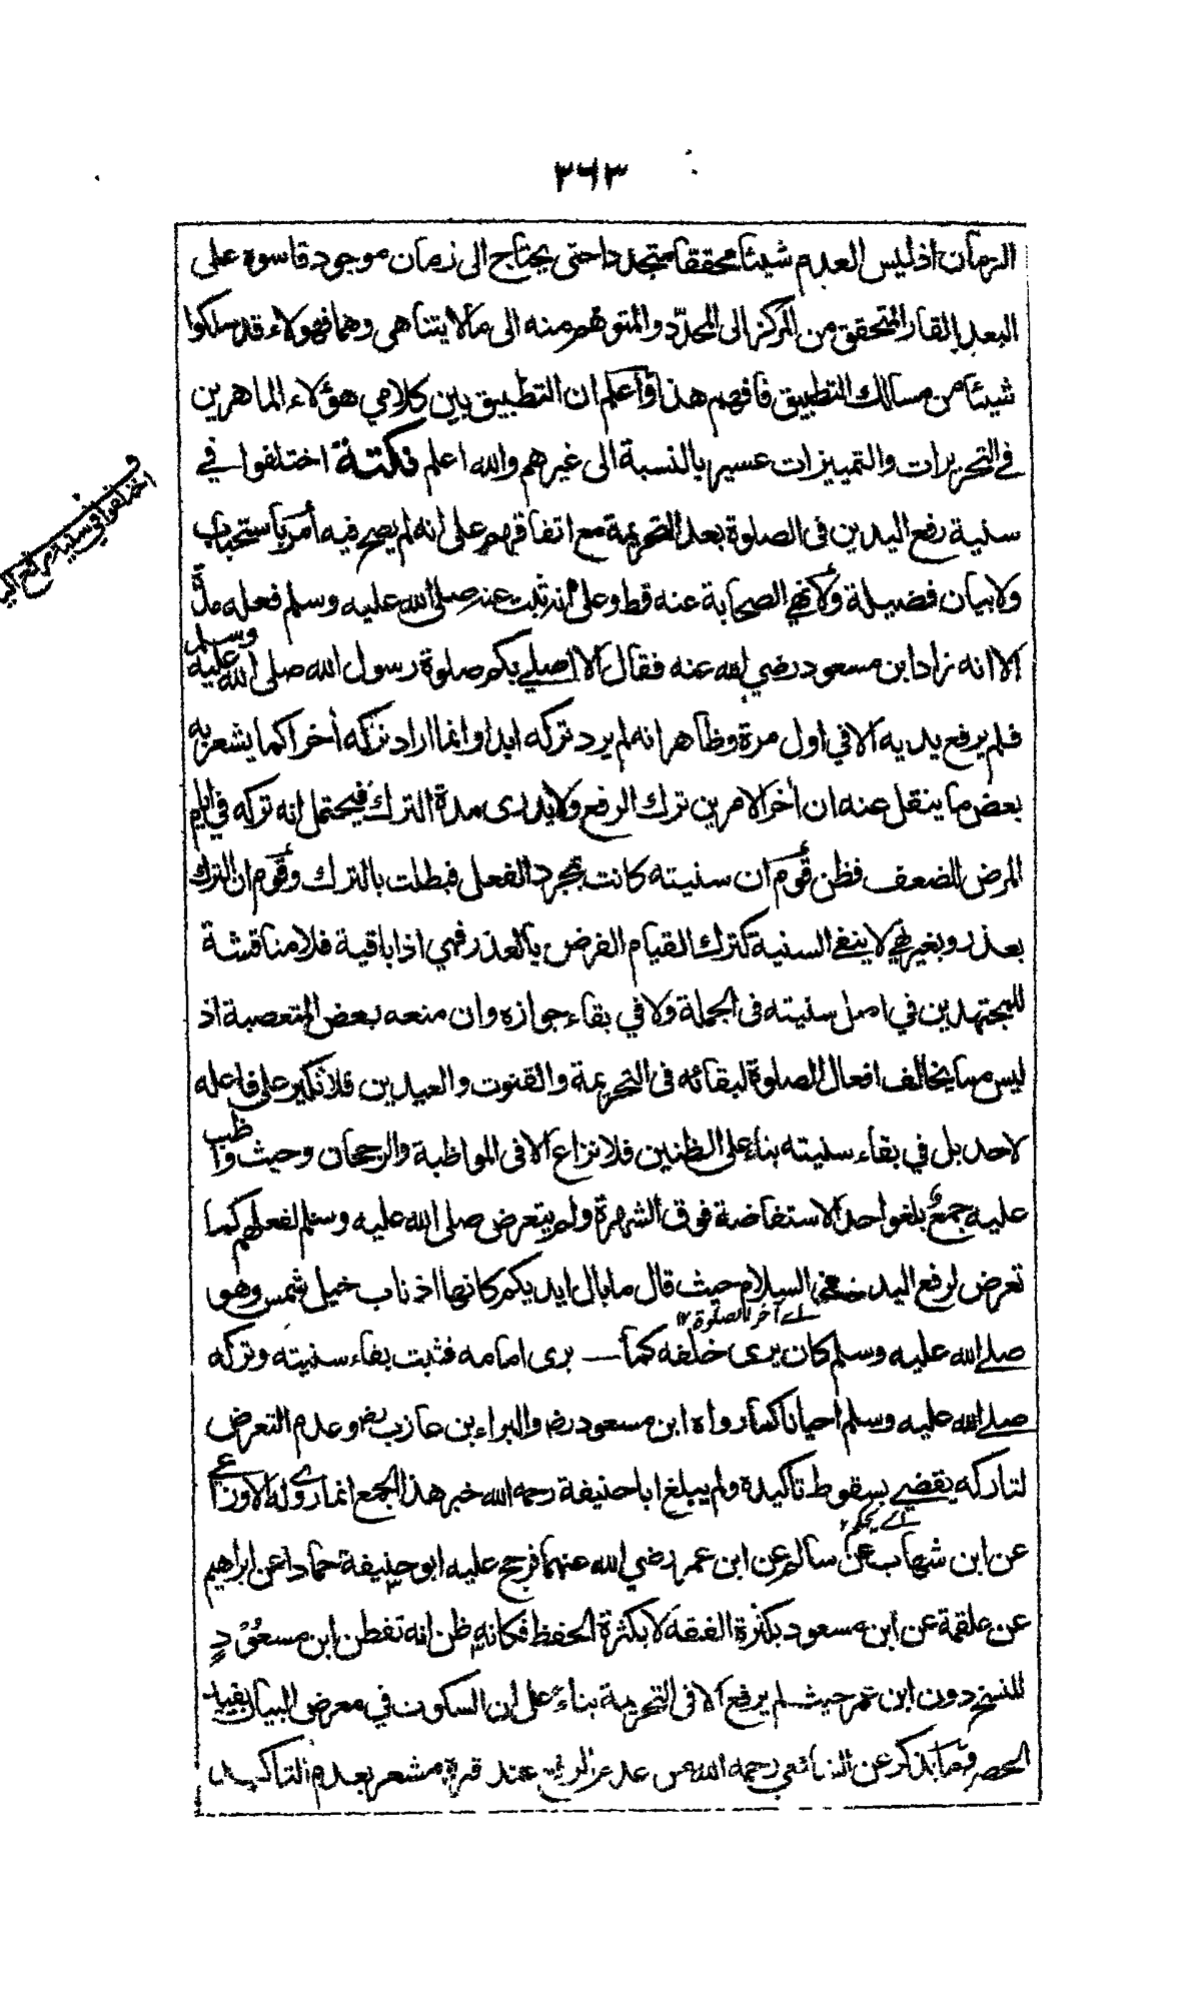 ٣٦٣
الزمان اذ ليس العدم شيئا محققا متجددا حتى يحتاج الى زمان موجود قاسوه على
البعد القار المتحقق من المركز الى المحدد والمتوهم منه الى مالا يتناهى وهما فهولاء قد سلكوا
شيئا من مسالك التطبيق فافهم هذا واعلم ان التطبيق بين كلامي هؤلاء الماهرين
في التحريرات والتمييزات عسير بالنسبة الى غيرهم والله اعلم نكتة اختلفوا في
سنية رفع اليدين فى الصلوة بعد التحريمة مع اتفاقهم على انه لم يصح فيه أمر باستحباب
ولا بيان فضيلة ولا نهي الصحابة عنه قط وعلى أنه ثبت عنه صلى الله عليه وسلم فعله مدة
الا انه زاد ابن مسعود رضي الله عنه فقال الا اصلي بكم صلوة رسول الله صلى الله عليه وسلم
فلم يرفع يديه الا في اول مرة وظاهر انه لم يرد تركه ابدا وانما اراد تركه أخرا كما يشعر به
بعض ما ينقل عنه ان أخر الامرين ترك الرفع ولا يدرى مدة الترك فيحتمل انه تركه في ايام
المرض للضعف فظن قوم ان سنيته كانت بمجرد الفعل فبطلت بالترك وقوم ان الترك
بعذر وبغير نهي لا ينفي السنية كترك القيام الفرض بالعذر فهي اذا باقية فلا مناقشة
للمجتهدين في اصل سنيته فى الجملة ولا في بقاء جوازه وان منعه بعض المتعصبة اذ
ليس مما يخالف افعال الصلوة لبقائه فى التحريمة والقنوت والعيدين فلا نكير على فاعله
لاحد بل في بقاء سنيته بناء على الظنين فلا نزاع الا فى المواظبة والرجحان وحيث واظب
عليه جمع بلغوا حد الاستفاضة فوق الشهرة ولم يتعرض صلى الله عليه وسلم لفعلهم كما
تعرض لرفع اليد في السلام حيث قال ما بال ايديكم كانها اذناب خيل شمس وهو
اے آخر الصلوة ١٢
صلى الله عليه وسلم كان يرى خلفه كما يرى امامه فثبت بقاء سنيته وتركه
صلى الله عليه وسلم احيانا كما رواه ابن مسعود رض والبراء بن عازب رض وعدم التعرض
لتاركه يقضي بسقوط تاكيده ولم يبلغ ابا حنيفة رحمه الله خبر هذا الجمع انما روى له الاوزاعي
اے يحكم ١٢
عن ابن شهاب عن سالم عن ابن عمر رضي الله عنهما فرجح عليه ابو حنيفة حمادا عن ابراهيم
عن علقمة عن ابن مسعود بكثرة الفقه لا بكثرة الحفظ فكانه ظن انه تفطن ابن مسعود
للنسخ دون ابن عمر حيث لم يرفع الا فى التحريمة بناء على ان السكوت في معرض البيان يفيد
الحصر وما يذكر عن الشافعي رحمه الله من عدم الرفع عند قبره مشعر بعدم التاكيد
اختلفوا في سنية رفع